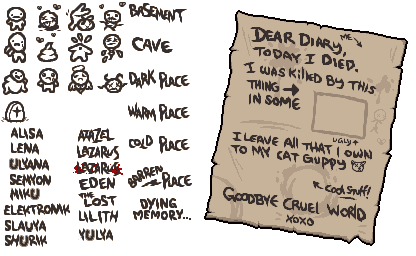 BASEMENT
CAVE
DARK PLACE
WARM PLACE
COLD PLACE
BARREN PLACE
DYING
MEMORY...
ALISA
LENA
ULYANA
SEMYON
MIKU
ELEKTRONIK
SLAVYA
SHURIK
AZAZEL
LAZARUS
LAZARUS
EDEN
THE
LOST
LILITH
YULYA
DEAR DIARY,
ME
TODAY I DIED.
I WAS KILLED BY THIS
THING →
IN SOME
UGLY↑
I LEAVE ALL THAT I OWN
TO MY CAT GUPPY
↖ COOL STUFF!
GOODBYE CRUEL WORLD
XOXO